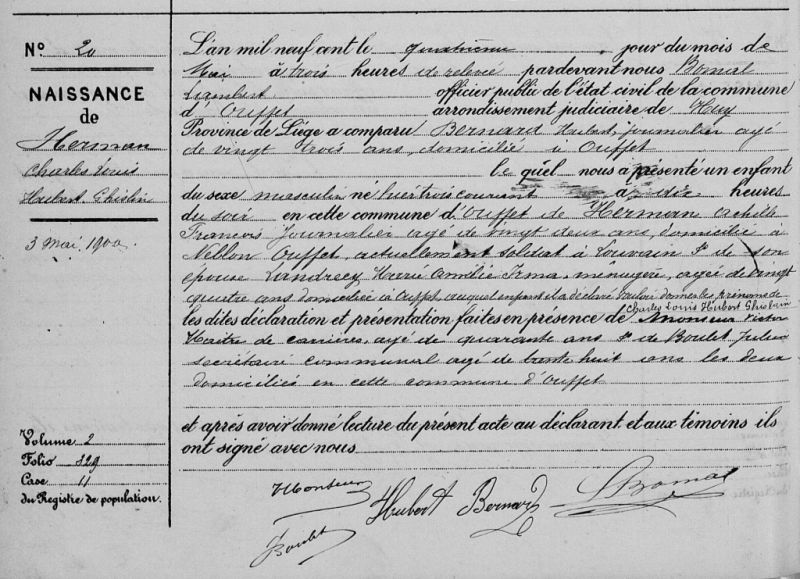 N° 20
NAISSANCE
de
Herman
Charles Louis
Hubert Ghislin
3 Mai 1900
Volume 2
Folio 329
Case 11
du Registre de population.
L'an mil neuf cent le quatrième jour du mois de
Mai à trois heures de relevée pardevant nous Bomal
Lambert officier public de l'état civil de la commune
d'Ouffet arrondissement judiciaire de Huy
Province de Liège a comparu Bernard Hubert, journalier agé
de vingt trois ans, domicilié à Ouffet
le quel nous a présenté un enfant
du sexe masculin né hier trois courant à dix heures
du soir en cette commune d'Ouffet de Herman Achille
François Journalier agé de vingt deux ans, domicilié à
Neblon Ouffet, actuellement soldat à Louvain & de son
épouse Landrecy Marie Amélie Irma, ménagère, agée de vingt
quatre ans domiciliée à Ouffet auquel enfant il a déclaré vouloir donner les prénoms de
Charles Louis Hubert Ghislain
les dites déclaration et présentation faites en présence de Monseur Victor
Maître de carrières, agé de quarante ans & de Boulet Julien
secrétaire communal agé de trente huit ans les deux
domiciliés en cette commune d'Ouffet
et après avoir donné lecture du présent acte au déclarant et aux témoins ils
ont signé avec nous
Hubert Bernard
LBomal
Boulet